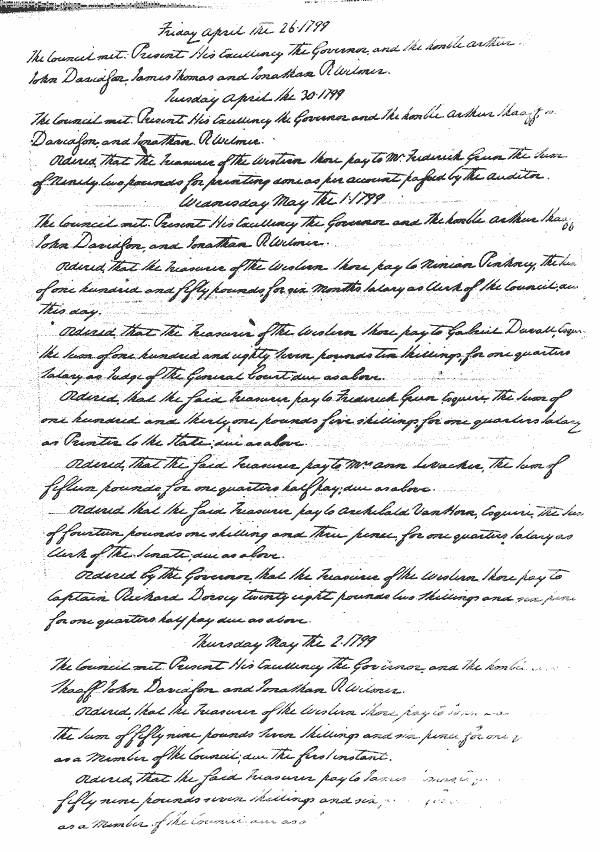 Friday April the 26. 1799
The Council met. Present His Excellency the Governor, and the honble Arthur
John Davidson, James Thomas and Jonathan R. Wilmer.
Tuesday April the 30. 1799
The Council met. Present His Excellency the Governor and the honble Arthur Shaaff
Davidson, and Jonathan R Wilmer.
Ordered, that the Treasurer of the Western Shore pay to Mr. Frederick Green the Sum
of Ninety two pounds for printing done as per account passed by the Auditor.
Wednesday May the 1. 1799
The Council met. Present His Excellency the Governor and the honble Arthur Shaaff
John Davidson, and Jonathan R. Wilmer.
Ordered, that the Treasurer of the Western Shore pay to Ninian Pinkney, the Sum
of one hundred and fifty pounds for six Months Salary as Clerk of the Council, due
this day.
Ordered, that the Treasurer of the Western Shore pay to Gabriel Duvall Esqr
the Sum of one hundred and eighty seven pounds ten Shillings, for one quarters
Salary as Judge of the General Court due as above.
Ordered, that the said Treasurer pay to Frederick Green Esquire, the Sum of
one hundred and thirty one pounds five shillings for one quarters Salary
as Printer to the State; due as above
Ordered, that the said Treasurer pay to Mrs. Ann Levacher, the Sum of
fifteen pounds, for one quarters half pay; due as above.
Ordered that the said Treasurer pay to Archibald VanHorn, Esquire, the Sum
of fourteen pounds one shilling and three pence, for one quarters Salary as
Clerk of the Senate due as above.
Ordered by the Governor, that the Treasurer of the Western Shore pay to
Captain Richard Dorsey twenty eight pounds two shillings and six pence
for one quarters half pay due as above.
Thursday May the 2. 1799
The Council met. Present His Excellency the Governor, and the honble
Shaaff John Davidson and Jonathan R Wilmer.
Ordered, that the Treasurer of the Western Shore pay to
the Sum of fifty nine pounds seven Shillings and six pence for one
as a Member of the Council; due the first instant.
Ordered, that the said Treasurer pay to James
fifty nine pounds seven Shillings and six
as a Member of the Council due as